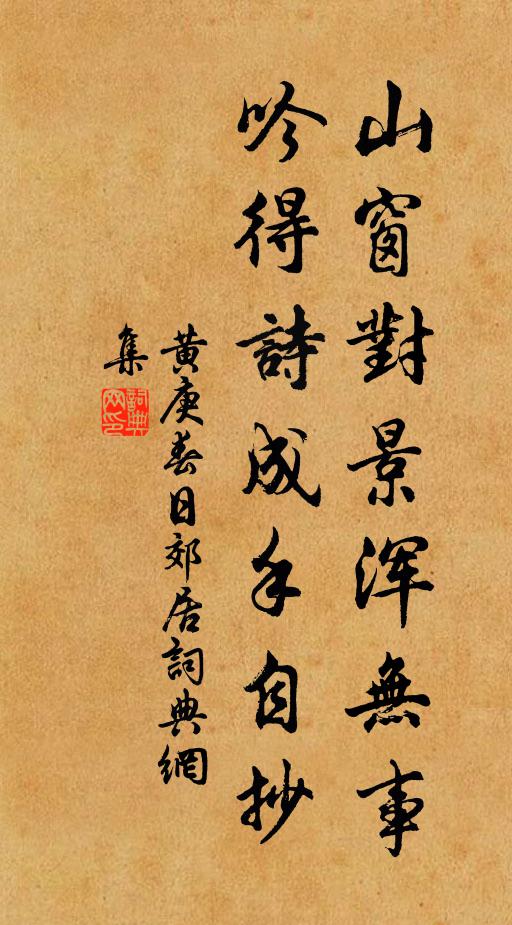 山窗對景渾無事
吟得詩成手自抄
黃庚春日郊居詞典網
集
詞典网印